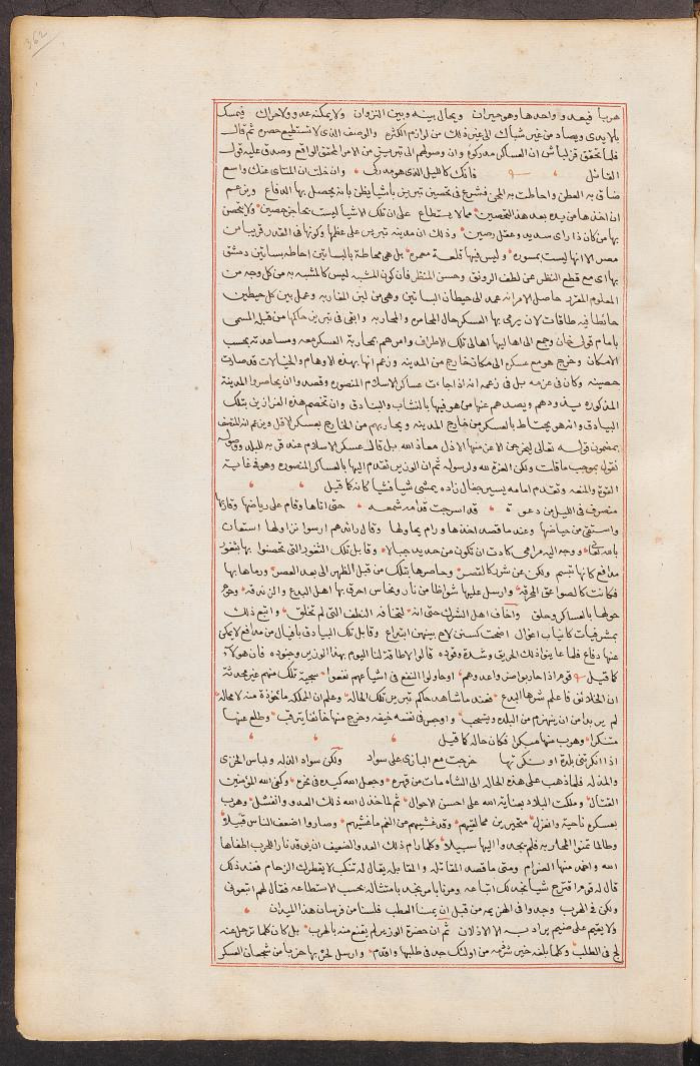 362
هربا فيعدو واحدها وهو حيران ويحال بينه وبين النزوان ولا يمكنه عدو ولا حراك فيمسك
بالايدي ويصاد من غير شباك الى غير ذلك من لوازم الكثره والوصف الذي لا نستطيع حصره ثم قال
فلما تحقق قزلباش ان العساكر مدركوه وان وصولهم الى تبريز من الامر المحقق الواقع وصدق عليه قول
القائل فانك كالليل الذي هو مدركي وان خلت ان المنتاى عنك واسع
ضاق به العطن واحاطت به المحن فشرع في تحصين تبريز باشيا يظن بانه يحصل بها الدفاع ويزعم
ان اخذها من يده بعد هذا التحصين مما لا يستطاع على ان تلك الاشيا ليست بحاجز حصين ولا يتحصن
بها من كان ذا راى سديد وعقل رصين وذلك ان مدينه تبريز على عظمها وكونها في القدر قريبا من
مصر الا انها ليست بمسوره وليس فيها قلعة معمره بل هي محاطة بالبساتين احاطه بساتين دمشق
بها اى مع قطع النظر عن لطف الرونق وحسن المنظر فان كون المشبه ليس كالمشبه به من كل وجه من
المعلوم المقرر حاصل الامر انه عمد الى حيطان البساتين وهى من لبن المغاربه وعمل بين كل حيطين
حائطا فيه طاقات لان يرمى بها العسكر حال المحاصره والمحاربه وابقى في تبريز حاكمها من قبله المسمى
بامام قولى خان وجمع الى اهاليها اهالى تلك الاطراف وامرهم بمحاربة العسكر معه ومساعدته بحسب
الامكان وخرج هو مع عسكره الى مكان خارج من المدينه وزعم انها بهذه الاوهام والخيالات قد صارت
حصينه وكان في عزمه بل في زعمه انه اذا جاءت عساكر الاسلام المنصوره وقصدوا ان يحاصروا المدينة
المذكوره يذودهم ويصدهم عنها من هو فيها بالنشاب والبنادق وان تخصم هذه الفرازين بتلك
البيادق وانه هو يحتاط بالعسكر من خارج المدينه ويحاربهم من الخارج بعسكره الاقل ويزعم انه المتصف
بمضمون قوله تعالى ليخرجن الاعز منها الاذل معاذ الله بل قال عسكر الاسلام عند قربه للبلد وصوله
نقول بموجب ما قلت ولكن العزة لله ولرسوله ثم ان الوزير تقدم اليها بالعساكر المنصوره وهو في غاية
القوة والمنعه وتقدم امامه يسير جغال زاده يمشى شيا فشيا كانه كما قيل
منصرف في الليل من دعوة قد اسرجت قدامه شمعه حتى اتاها وقام على رياضها وقاد كما
واستقى من حياضها وعند ما قصد اخذها ورام يحاولها وقال رائدهم ارسوا نزاولها استعان
بالله تعالى ووجه اليه مرامى كادت ان تكون من حديد جبالا وقابل تلك الثغور التي تحصنوا بها بثغور
مدافع كانها تبسم ولكن عن شرر كالقصر وحاصرها بتلك من قبل الظهر الى بعد العصر ورماها بها
فكانت كالصواعق المحرقه وارسل عليها شواظا من نار ونحاس احرق بها اهل البدع والزندقه وحول
حولها بالعساكر وحلق واخاف اهل الشرك حتى انه لتخافه النطف التي لم تخلق واتبع ذلك
بمشرفيات كانياب اغوال اضحت كسنن لاح بينهن ابتداع وقابل تلك البيادق بافيال من مدافع لا يمكن
عنها دفاع فلما عاينوا ذلك الحريق وشدة وقوده قالوا لا طاقة لنا اليوم بهذا الوزير وجنوده فان هولاء
كما قيل قوم اذا حاربوا ضر واعدوهم او حاولوا النفع في اشياعهم نفعوا سجية تلك منهم غير محدثة
ان الخلائق فاعلم شرها البدع فعند ما شاهد حاكم تبريز تلك الحاله وعلم ان المملكه ماخوذة منه لا محاله
لم ير بدا من ان ينهزم من البلده ويسحب واوجس في نفسه خيفه وخرج منها خائفا يترقب وطلع عنها
متنكرا وهرب منها مبكرا فكان حاله كما قيل
اذا انكرتنى بلدة او نكرتها خرجت مع البازى على سواد ولكن سواد الذله ولباس الخزى
والمذله فلما ذهب على هذه الحاله الى الشاه مات من قهره وجعل الله كيده في نحره وكفى الله المؤمنين
القتال وملكت البلاد بعناية الله على احسن الاحوال ثم لما خذل الله ذلك العدو والفشل وهرب
بعسكره ناحية وانعزل متحيرين مخافتهم وقد غشيهم من الغم ما غشيهم وصاروا اضعف الناس قبيلا
وطالما تمنوا المحاربه فلم يجدوا اليها سبيلا وكلما رام ذلك العدو الضعيف ان يوقد نارا للحرب اطفاها
الله واخمد منها الضرام ومتى ما قصد المقاتله والمقابله يقال له تنكب لا يقطرك الزحام فعند ذلك
قال له قوم اقترح شيا نجد لك اتباعه ومرنا بامر نجد بامتثاله بحسب الاستطاعه فقال لهم اتبعونى
ولكن في الهرب وجدوا في الهزيمه من قبل ان يمسنا العطب فلسنا من فرسان هذا الميدان
ولا يقيم على ضيم يراد به الا الاذلان ثم ان حضرة الوزير لم يقنع منه بالهرب بل كان كلما ترحل عنه
لج في الطلب وكلما بلغه خبر شرذمه من اولئك جد في طلبها واقدم وارسل لحربها حزبا من شجعان العسكر